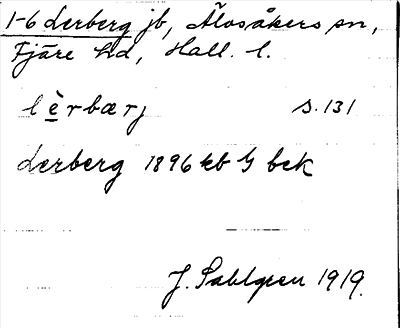 1-6 Lerberg jb, Älvsåkers sn,
Fjäre hd, Hall. l.
lèrbærj s. 131
Lerberg 1896 kb G bck
J. Sahlgren 1919.